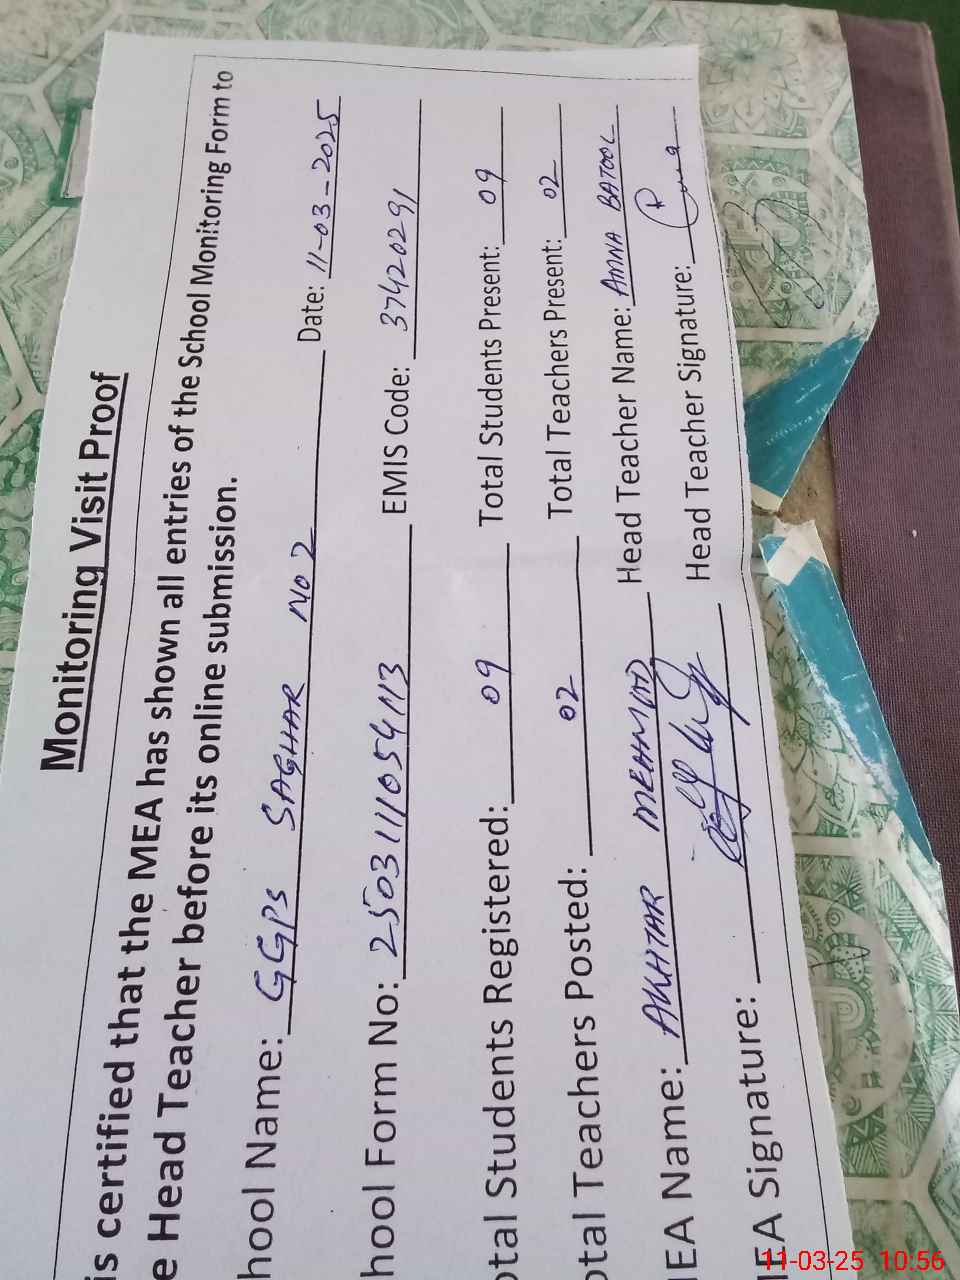 Monitoring Visit Proof
is certified that the MEA has shown all entries of the School Monitoring Form to
e Head Teacher before its online submission.
hool Name: GGPS SAGHAR NO 2 Date: 11-03-2025
hool Form No: 2503111054113 EMIS Code: 37420291
otal Students Registered: 09 Total Students Present: 09
otal Teachers Posted: 02 Total Teachers Present: 02
MEA Name: AKHTAR MEHMOOD Head Teacher Name: AMNA BATOOL
MEA Signature: Head Teacher Signature:
11-03-25 10:56